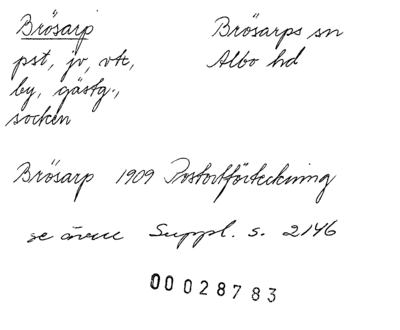 Brösarp
pst, jv, vtt,
by, gästg.,
socken
Brösarps sn
Albo hd
Brösarp 1909 Postortförteckning
se även Suppl. s. 2146
00028783